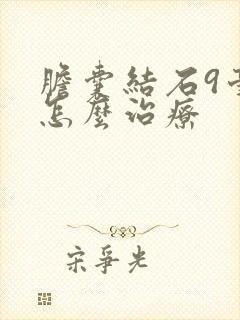 膽囊結石9
怎麼治療
宋爭光